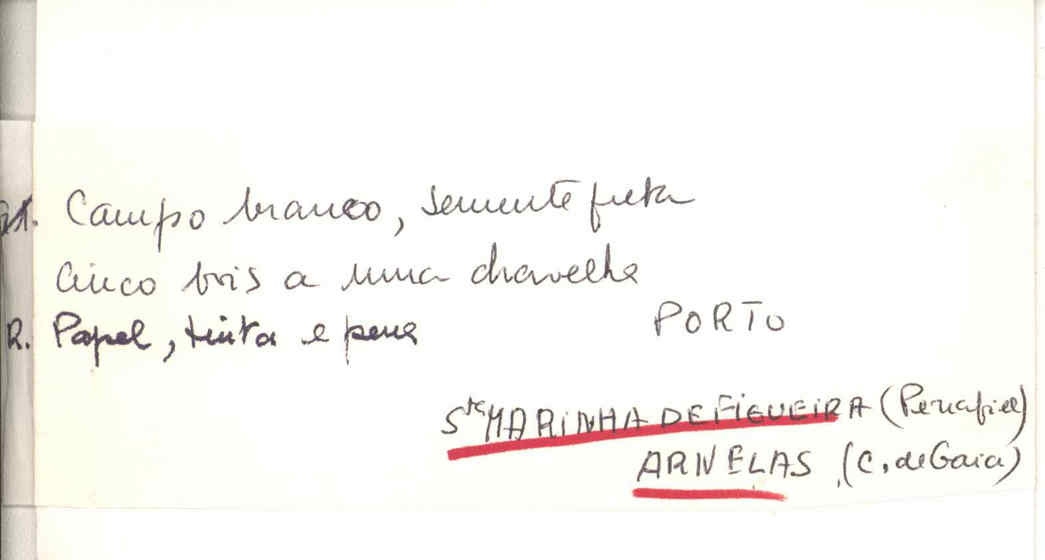 Campo branco, semente preta
Cinco bois a uma chavelha
R. Papel, tinta e pena
PORTO
Sta MARINHA DE FIGUEIRA (Penafiel)
ARNELAS (C. de Gaia)